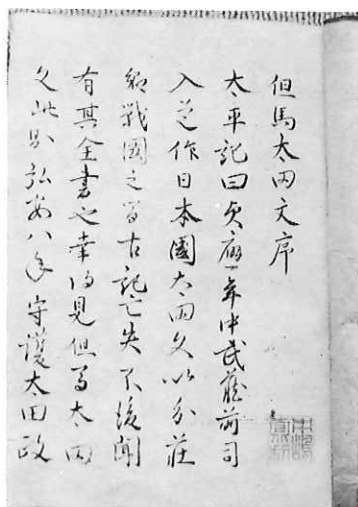 但馬太田文序
太平記曰貞應年中武藏前司
入道作日本國大田文以分莊
鄉戰國之古記亡失不復聞
有其全書也幸得見但馬太田
文此則弘安八年守護太田政